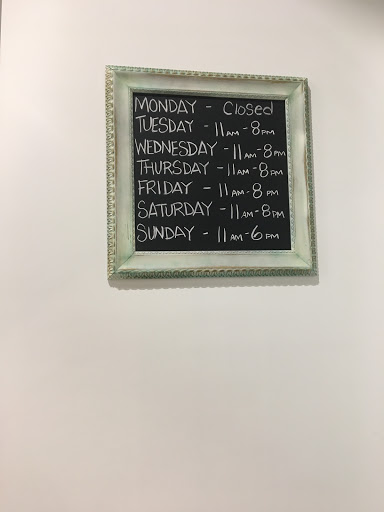 MONDAY - Closed
TUESDAY - 11 AM - 8 PM
WEDNESDAY - 11 AM - 8 PM
THURSDAY - 11 AM - 8 PM
FRIDAY - 11 AM - 8 PM
SATURDAY - 11 AM - 8 PM
SUNDAY - 11 AM - 6 PM